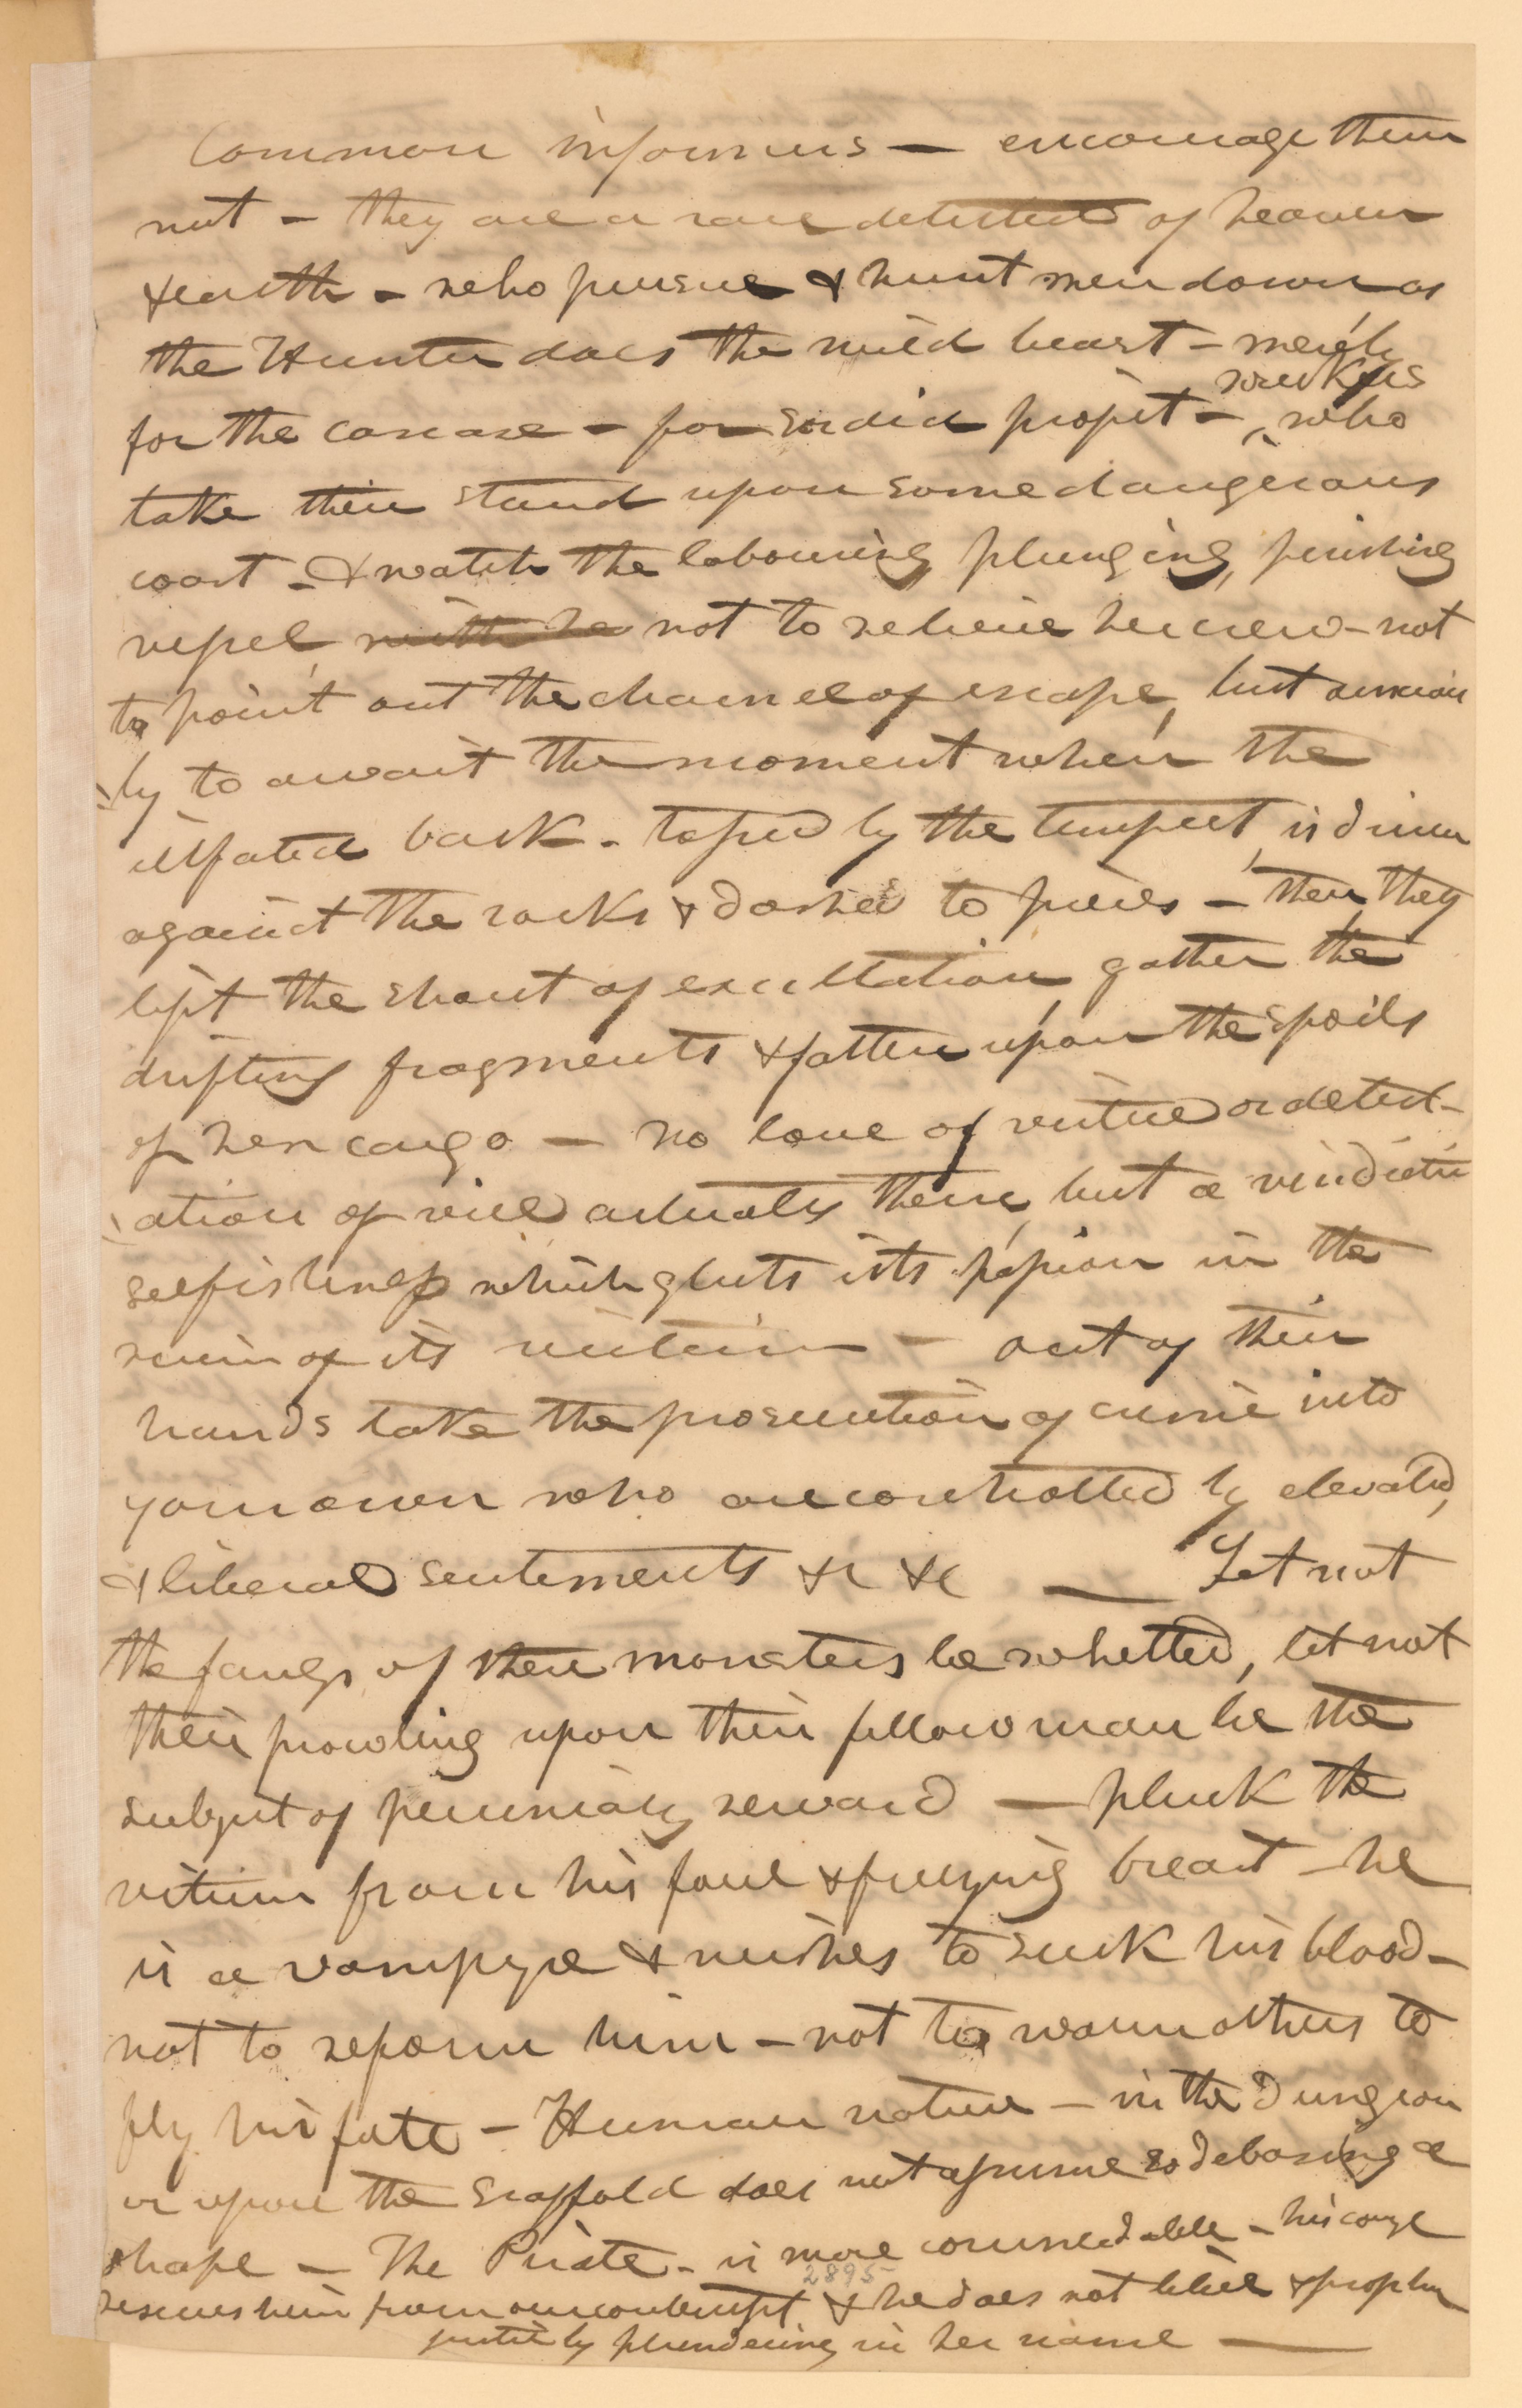 Common informers — encourage them
not - they are a race detested of heaven
& earth - who pursue & hunt men down as
the Hunter does the wild beast - merely
wreckers
for the carcase - for sordid profit - ^ who
take their stand upon some dangerous
coast - & watch the labouring, plunging, perishing
vessel with he not to relieve her crew - not
to point out the channel of escape, but anxious
ly to await the moment when the
illfated bark - tossed by the tempest, is driven
against the rocks & dashed to pieces - then, they
lift the shout of exultation, gather the
drifting fragments & fatten upon the spoils
of her cargo — no love of virtue or detest-
ation of vice actuates them, but a vindictive
selfishness which gluts its passion in the
ruin of its victim - out of their
hands take the prosecution of crime into
your own who are controlled by elevated,
& liberal sentiments &c &c — Let not
the fangs of these monsters be whetted, let not
their prowling upon their fellow man be the
subject of pecuniary reward — pluck the
victim from his foul & freezing breast - he
is a vampyre & wishes to suck his blood -
not to reform him - not to warn others to
fly his fate - Human nature - in the Dungeon
or upon the Scaffold does not assume so debasing a
shape — The Pirate - is more commendable - his courage
2895
rescues him from our contempt & he does not libel & prophane
justice by plundering in her name —